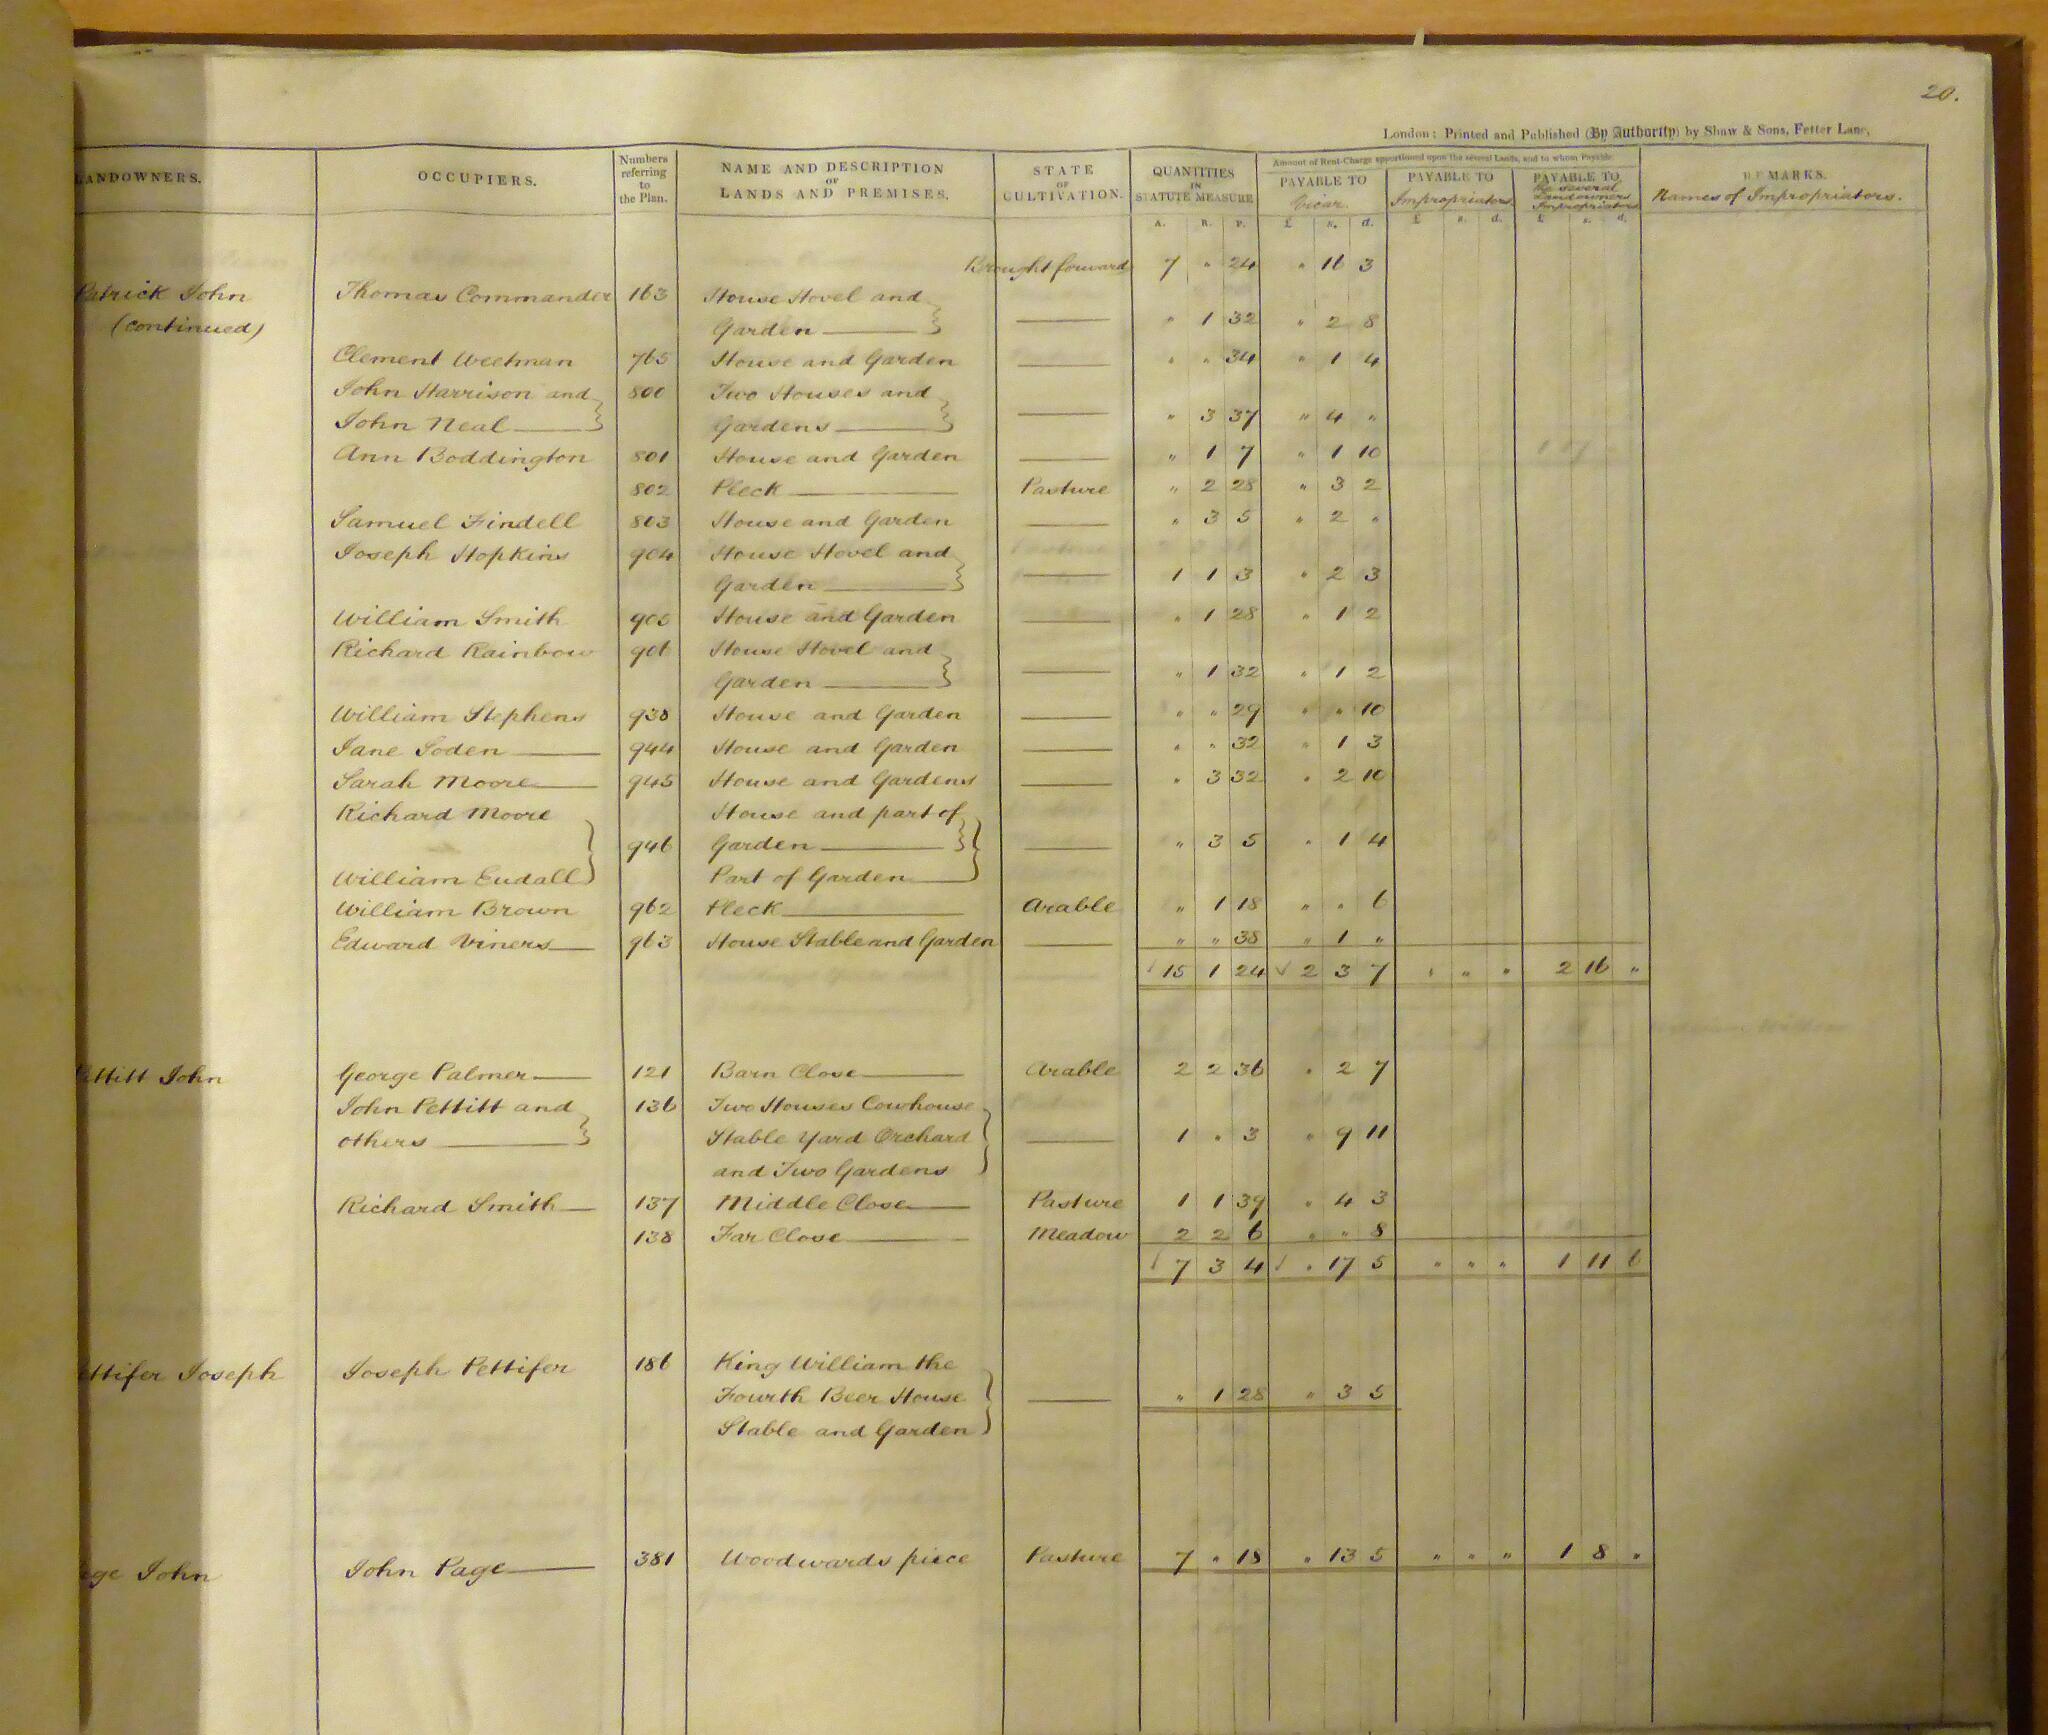 20.
London: Printed and Published (By Authority) by Shaw & Sons, Fetter Lane,
LANDOWNERS. OCCUPIERS. Numbers referring to the Plan. NAME AND DESCRIPTION OF LANDS AND PREMISES. STATE OF CULTIVATION. QUANTITIES IN STATUTE MEASURE Amount of Rent-Charge apportioned upon the several Lands, and to whom Payable. PAYABLE TO Vicar. PAYABLE TO Impropriators. PAYABLE TO the several Landowners Impropriators REMARKS. Names of Impropriators.
A. R. P. £ s. d. £ s. d. £ s. d.
Brought forward 7 " 24 " 16 3
Patrick John Thomas Commander 163 House Hovel and
(continued) Garden " 1 32 " 2 8
Clement Weetman 765 House and Garden " " 34 " 1 4
John Harrison and 800 Two Houses and
John Neal Gardens " 3 37 " 4 "
Ann Boddington 801 House and Garden " 1 7 " 1 10
802 Pleck Pasture " 2 28 " 3 2
Samuel Findell 803 House and Garden " 3 5 " 2 "
Joseph Hopkins 904 House Hovel and
Garden 1 1 3 " 2 3
William Smith 905 House and Garden " 1 28 " 1 2
Richard Rainbow 906 House Hovel and
Garden " 1 32 " 1 2
William Stephens 938 House and Garden " " 29 " " 10
Jane Soden 944 House and Garden " " 32 " 1 3
Sarah Moore 945 House and Gardens " 3 32 " 2 10
Richard Moore House and part of
946 Garden " 3 5 " 1 4
William Eudall Part of Garden
William Brown 962 Pleck Arable " 1 18 " " 6
Edward Viners 963 House Stable and Garden " " 38 " 1 "
15 1 24 2 3 7 " " " 2 16 "
ettitt John George Palmer 121 Barn Close Arable 2 2 36 " 2 7
John Pettitt and 136 Two Houses Cowhouse
others Stable Yard Orchard 1 " 3 " 9 11
and Two Gardens
Richard Smith 137 Middle Close Pasture 1 1 39 " 4 3
138 Far Close Meadow 2 2 6 " " 8
7 3 4 " 17 5 " " " 1 11 6
ettifer Joseph Joseph Pettifer 186 King William the
Fourth Beer House " 1 28 " 3 5
Stable and Garden
age John John Page 381 Woodwards piece Pasture 7 " 18 " 13 5 " " " 1 8 "